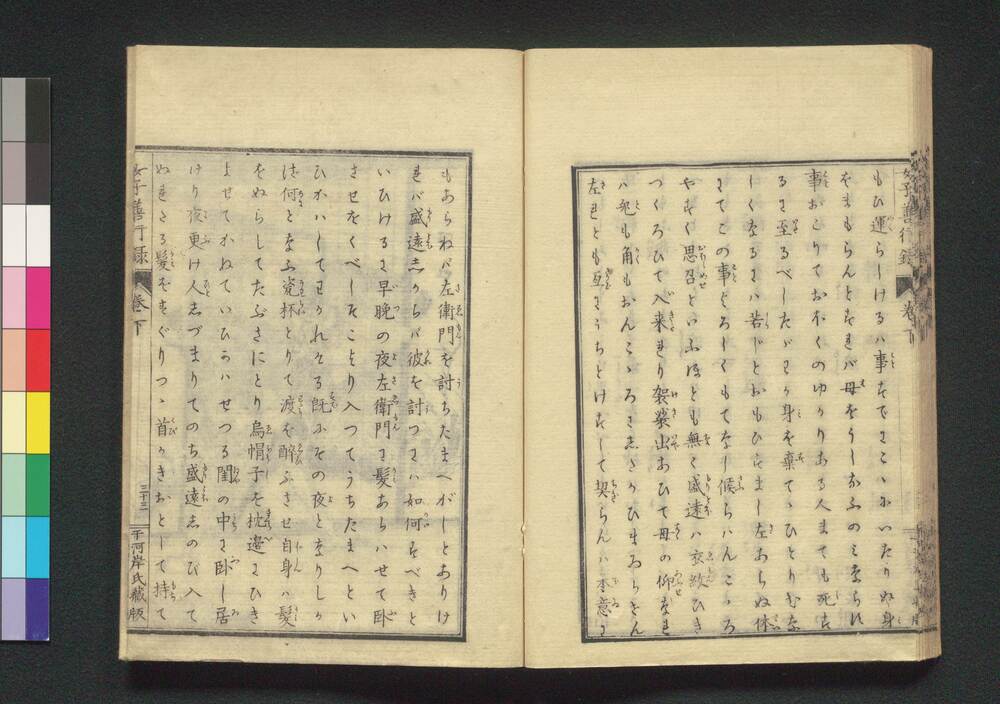 もひ運らしけるハ事すでにこゝにいたりぬ身
をまもらんとすれバ母をうしなふのミならバ
事おこりておほくのゆかりある人までも死す
るに至るべしたゞわが身を棄てゝひとりむな
しくなるにハ若じとおもひすまし左あらぬ体
にてこの事よろしくもてなし候らハんこゝろ
やすく思召といふほども無く盛遠ハ衣紋ひき
つくろひて入来れり袈裟出あひて母の仰なれ
ハ兎も角もおんこゝろにしたがひまゐらせん
左れども互にうちとけずして契らんハ本意に
もあらねバ左衛門を討ちたまへかしとありけ
れバ盛遠しからバ彼を討つにハ如何すべきと
いひけるに早晩の夜左衛門に髪あらハせて臥
させをくべしそこより入つてうちたまへとい
ひかハしてわかれける既にその夜となりしか
バ何となふ瓷杯とりて渡を酔ふさせ自身ハ髪
をぬらしてたぶさにとり烏帽子を枕邉にひき
よせてかねていひかハせつる閨の中に臥し居
けり夜更け人しづまりてのち盛遠しのび入て
ぬれたる髪をさぐりつゝ首かきおとして持て
女子善行録
巻下
三十三
千河岸氏蔵版